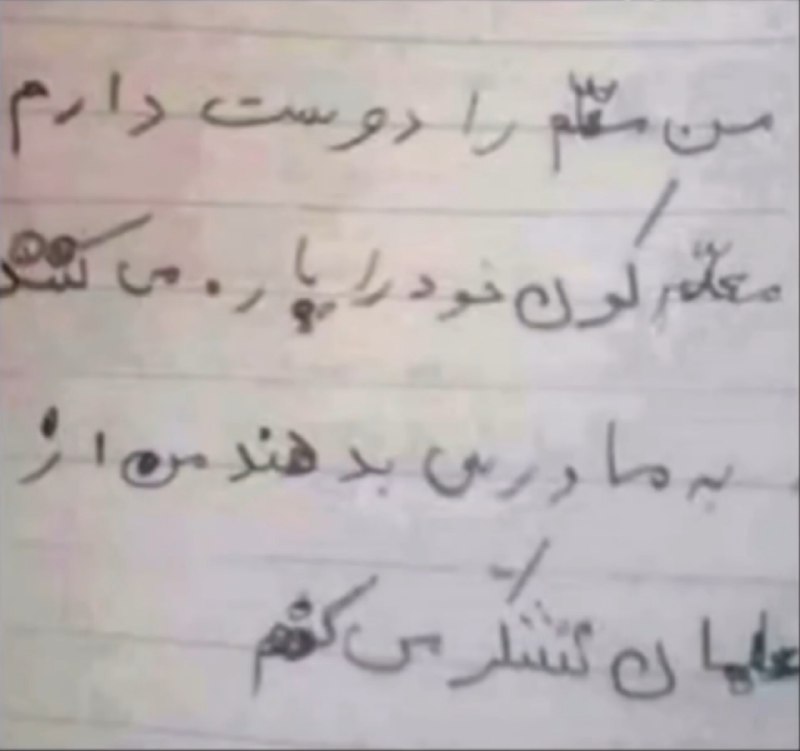 من معلّم را دوست دارم
معلّم کون خود را پاره می کنند
به ما درس بدهند من از
علمان تشکر می کنم